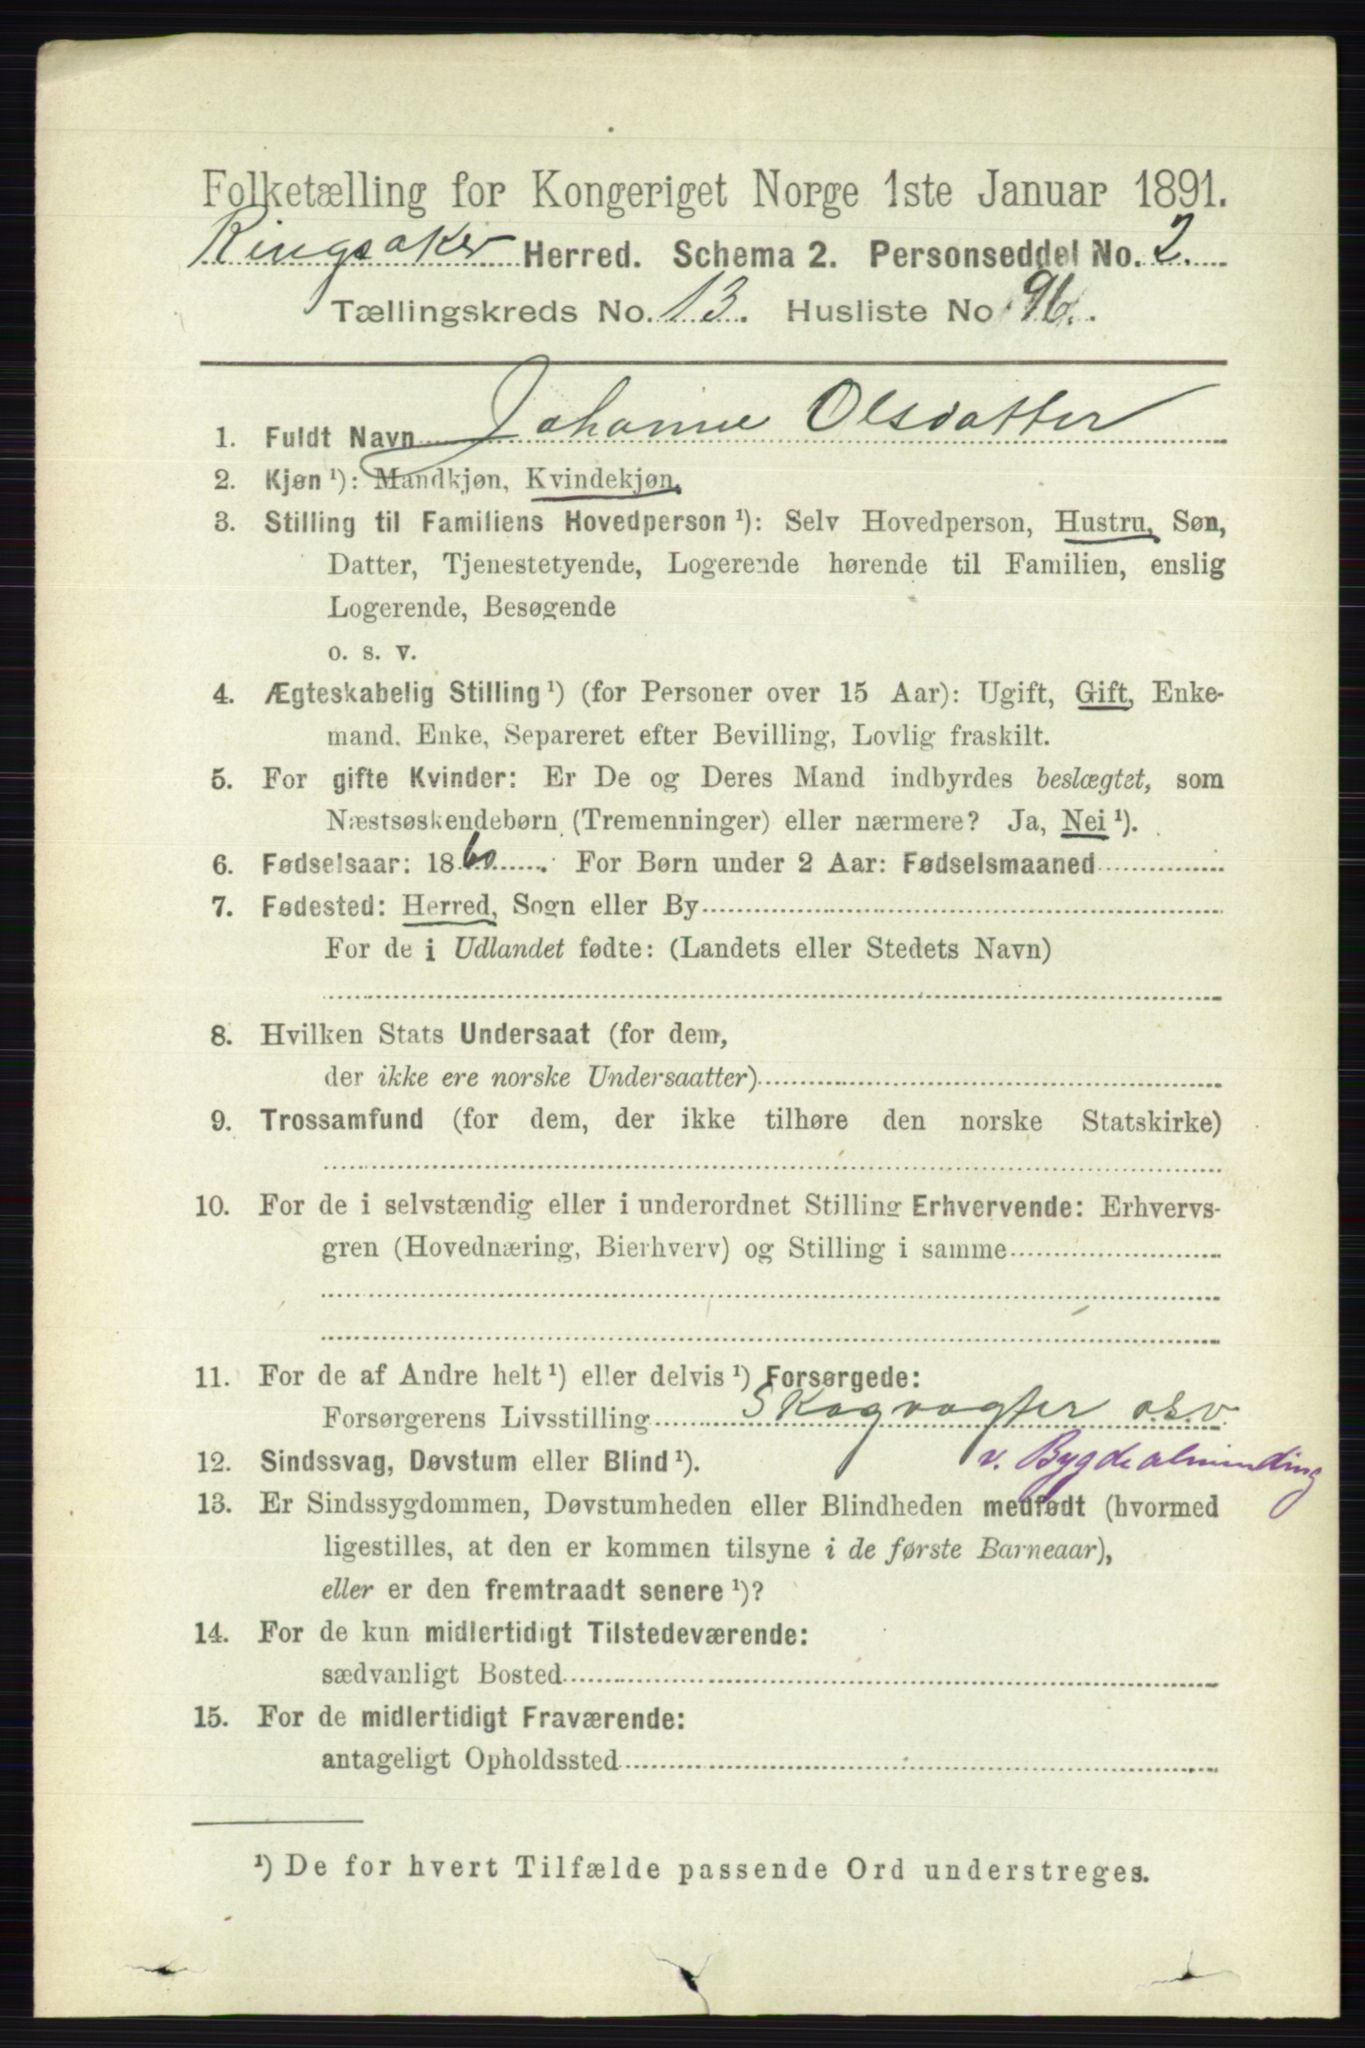 Folketælling for Kongeriget Norge 1ste Januar 1891.
Ringsaker Herred. Schema 2. Personseddel No. 2.
Tællingskreds No. 13. Husliste No 96.
1. Fuldt Navn Johanne Olsdatter
2. Kjøn ¹): Mandkjøn, Kvindekjøn.
3. Stilling til Familiens Hovedperson ¹): Selv Hovedperson, Hustru, Søn,
Datter, Tjenestetyende, Logerende hørende til Familien, enslig
Logerende, Besøgende
o. s. v.
4. Ægteskabelig Stilling ¹) (for Personer over 15 Aar): Ugift, Gift, Enke-
mand, Enke, Separeret efter Bevilling, Lovlig fraskilt.
5. For gifte Kvinder: Er De og Deres Mand indbyrdes beslægtet, som
Næstsøskendebørn (Tremenninger) eller nærmere? Ja, Nei ¹).
6. Fødselsaar: 1860. For Børn under 2 Aar: Fødselsmaaned
7. Fødested: Herred, Sogn eller By
For de i Udlandet fødte: (Landets eller Stedets Navn)
8. Hvilken Stats Undersaat (for dem,
der ikke ere norske Undersaatter)
9. Trossamfund (for dem, der ikke tilhøre den norske Statskirke)
10. For de i selvstændig eller i underordnet Stilling Erhvervende: Erhvervs-
gren (Hovednæring, Bierhverv) og Stilling i samme
11. For de af Andre helt ¹) eller delvis ¹) Forsørgede:
Forsørgerens Livsstilling Skogvogter o.s.v.
v. Bygdealminding
12. Sindssvag, Døvstum eller Blind ¹).
13. Er Sindssygdommen, Døvstumheden eller Blindheden medfødt (hvormed
ligestilles, at den er kommen tilsyne i de første Barneaar),
eller er den fremtraadt senere ¹)?
14. For de kun midlertidigt Tilstedeværende:
sædvanligt Bosted
15. For de midlertidigt Fraværende:
antageligt Opholdssted
¹) De for hvert Tilfælde passende Ord understreges.